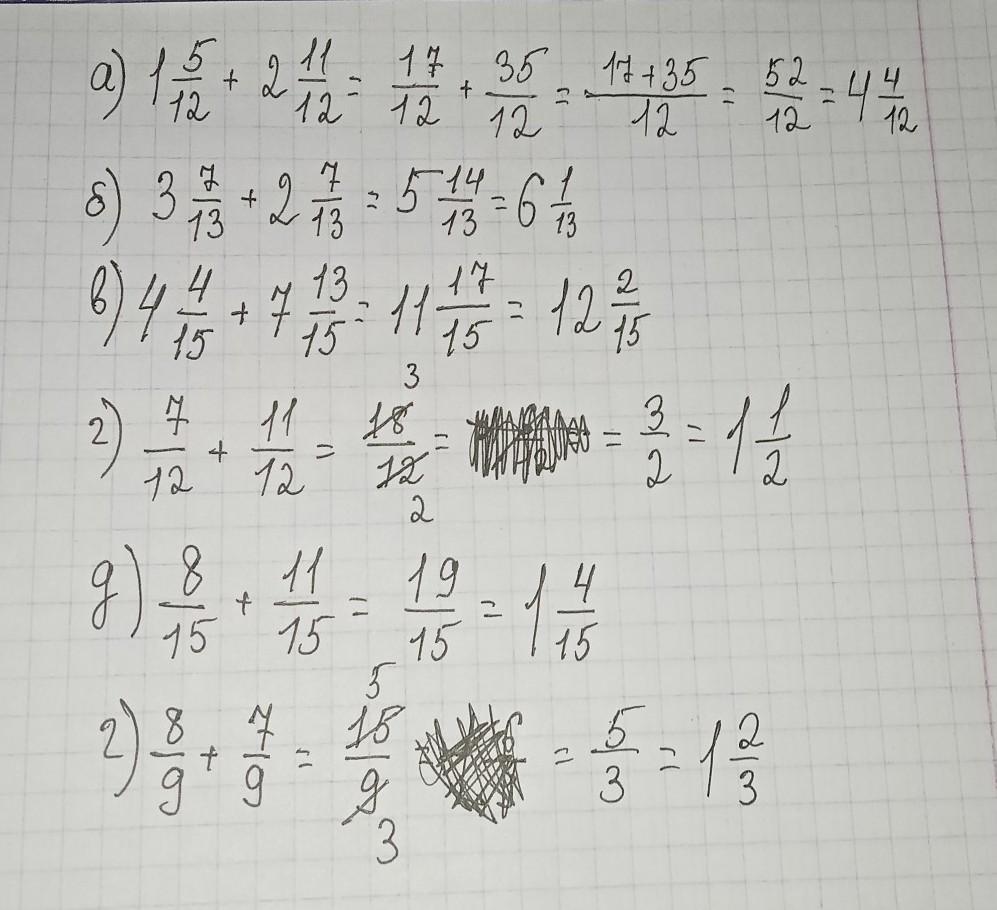 а) 1 5/12 + 2 11/12 = 17/12 + 35/12 = 17+35/12 = 52/12 = 4 4/12
б) 3 7/13 + 2 7/13 = 5 14/13 = 6 1/13
в) 4 4/15 + 7 13/15 = 11 17/15 = 12 2/15
3
г) 7/12 + 11/12 = 18/12 = = 3/2 = 1 1/2
2
д) 8/15 + 11/15 = 19/15 = 1 4/15
5
г) 8/9 + 7/9 = 15/9 = 5/3 = 1 2/3
3